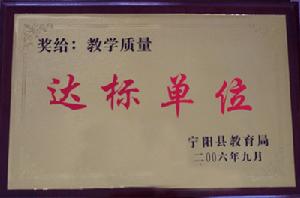 奖给：教学质量
达标单位
宁阳县教育局
二00六年九月